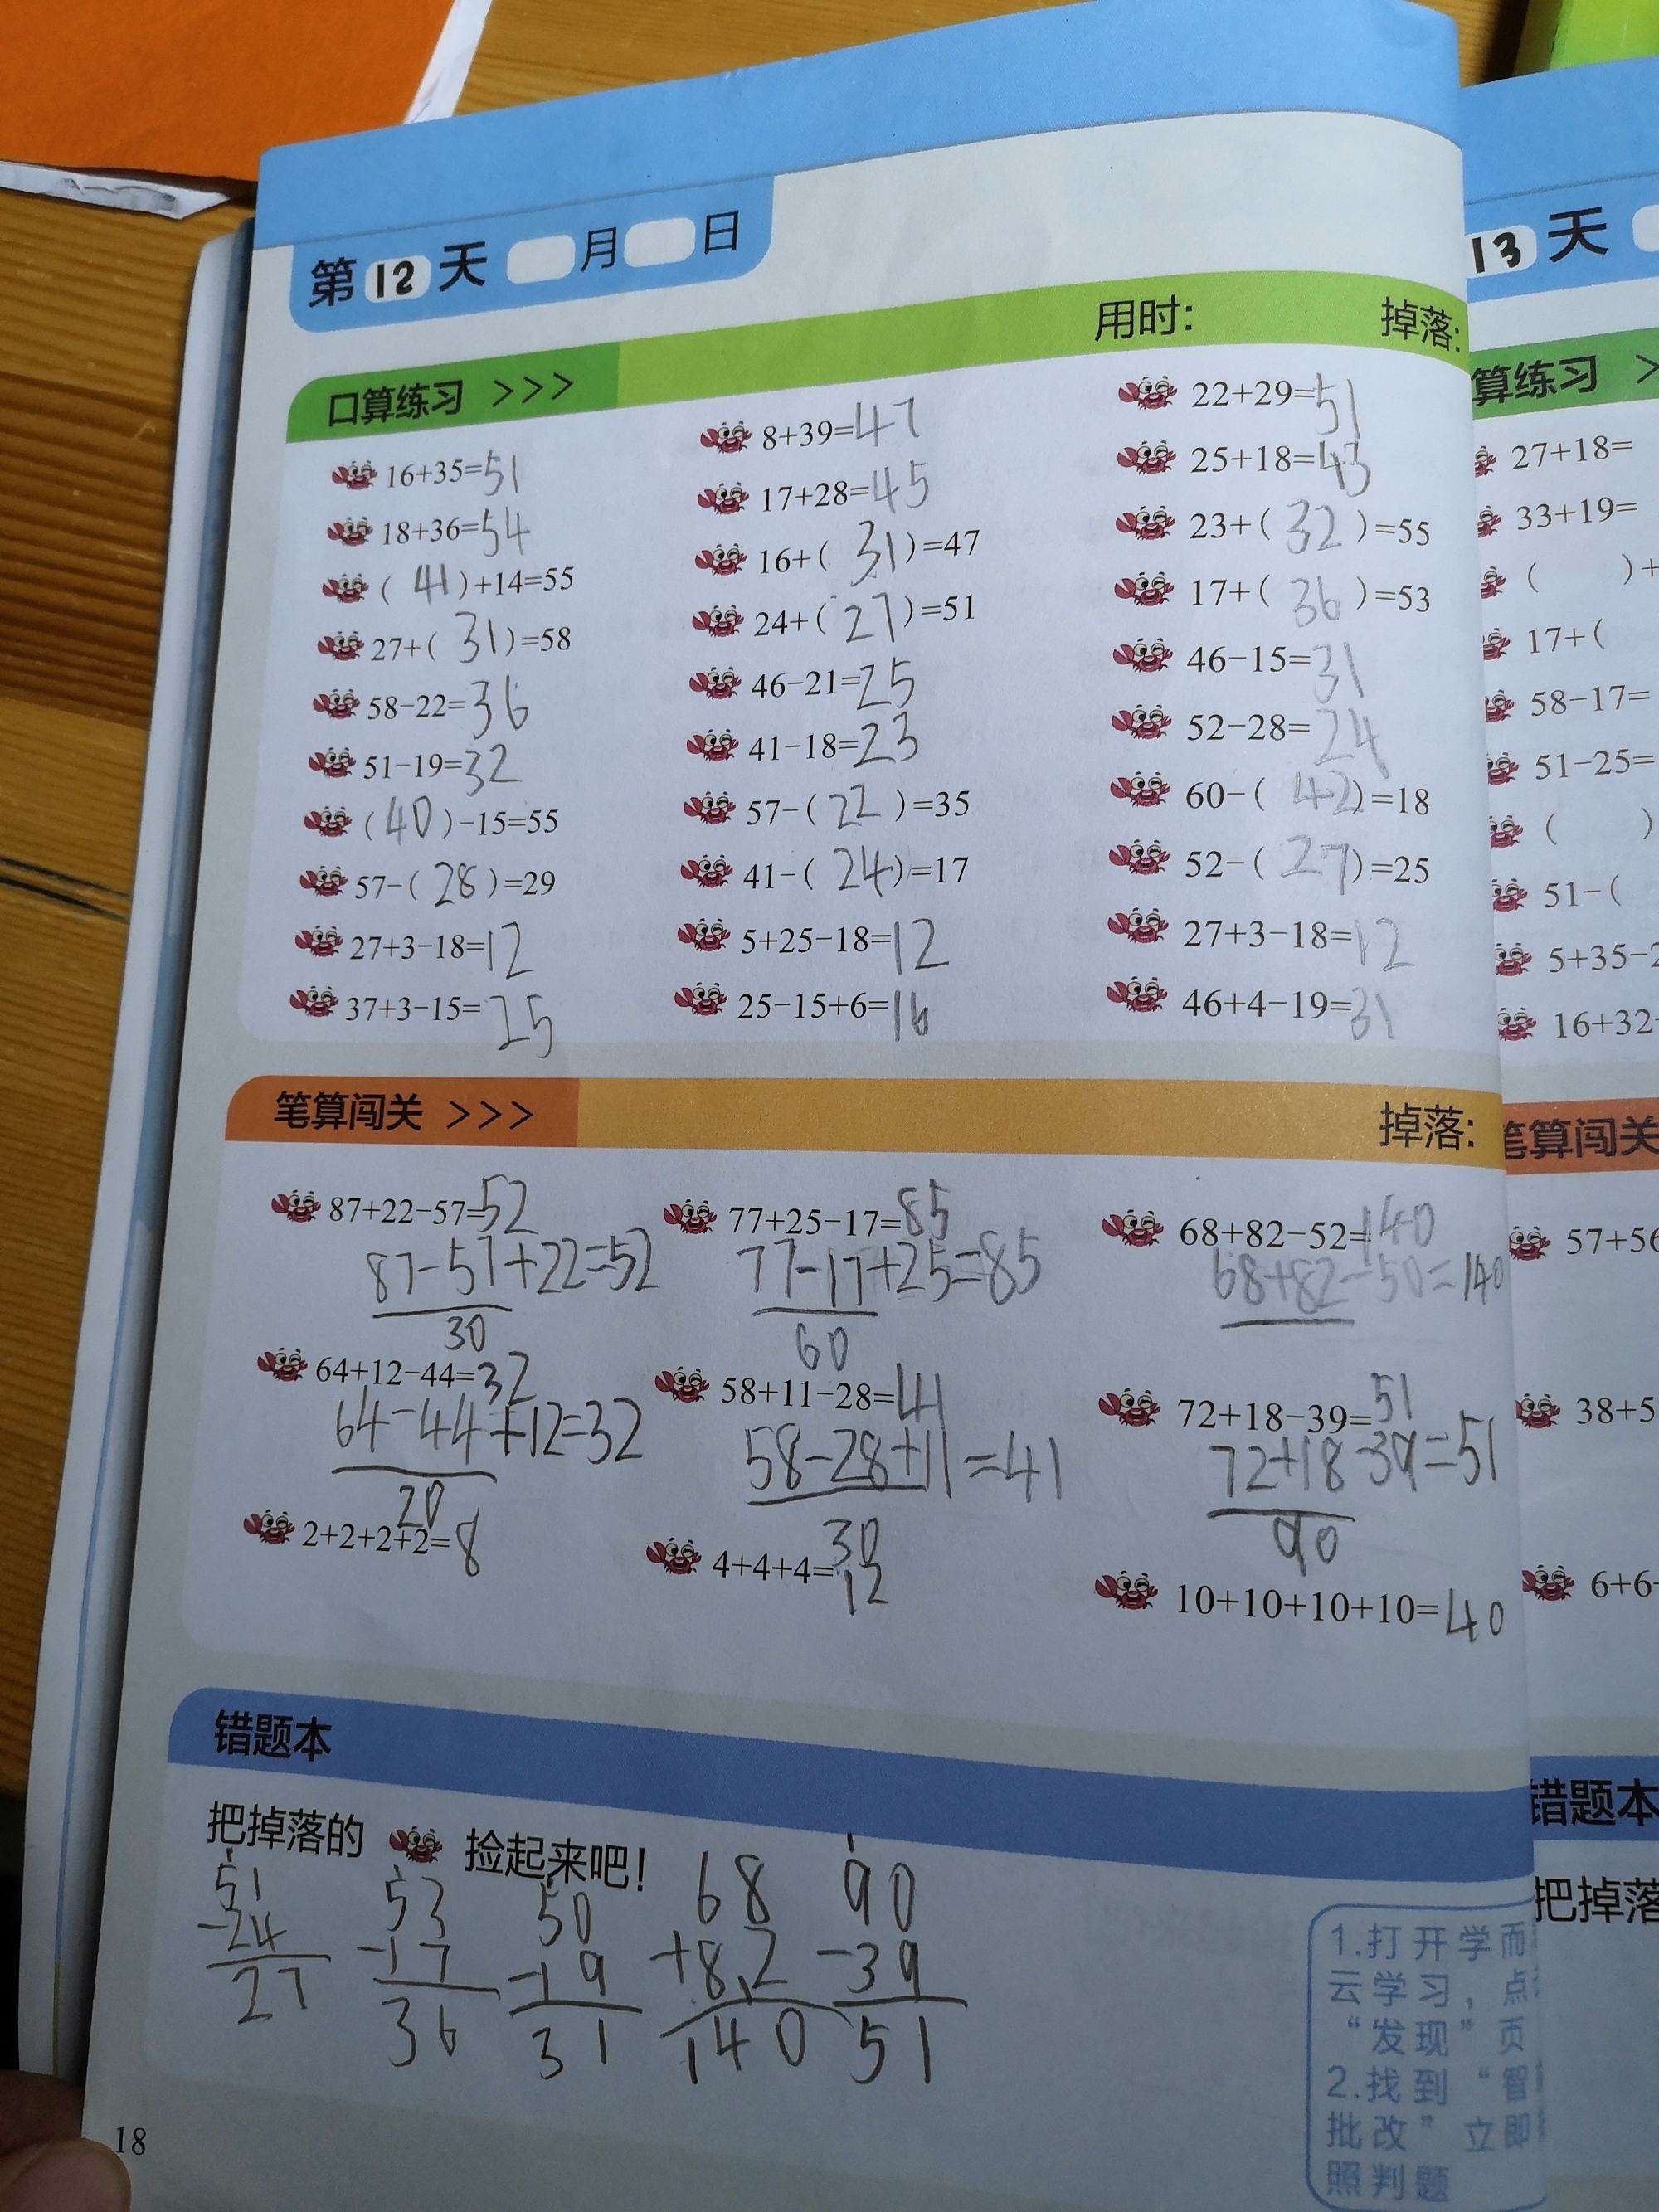 第12天 月 日
用时: 掉落:
口算练习 >>>
16+35=51
18+36=54
(41)+14=55
27+(31)=58
58-22=36
51-19=32
(40)-15=55
57-(28)=29
27+3-18=12
37+3-15=25
8+39=47
17+28=45
16+(31)=47
24+(27)=51
46-21=25
41-18=23
57-(22)=35
41-(24)=17
5+25-18=12
25-15+6=16
22+29=51
25+18=43
23+(32)=55
17+(36)=53
46-15=31
52-28=24
60-(42)=18
52-(27)=25
27+3-18=12
46+4-19=31
笔算闯关 >>>
掉落:
87+22-57=52
87-57+22=52
30
77+25-17=85
77-17+25=85
60
68+82-52=140
68+82-50=140
64+12-44=32
64-44+12=32
20
58+11-28=41
58-28+11=41
30
72+18-39=51
72+18-39=51
90
2+2+2+2=8
4+4+4=12
10+10+10+10=40
错题本
把掉落的 捡起来吧!
51
-24
27
53
-17
36
50
-19
31
68
+82
140
90
-39
51
1.打开学而
云学习,点
“发现”页
2.找到“智
批改”立即
照判题
18
13天
算练习 >
27+18=
33+19=
( )+
17+(
58-17=
51-25=
( )
51-(
5+35-2
16+32-
笔算闯关
57+56
38+5
6+6+
错题本
把掉落